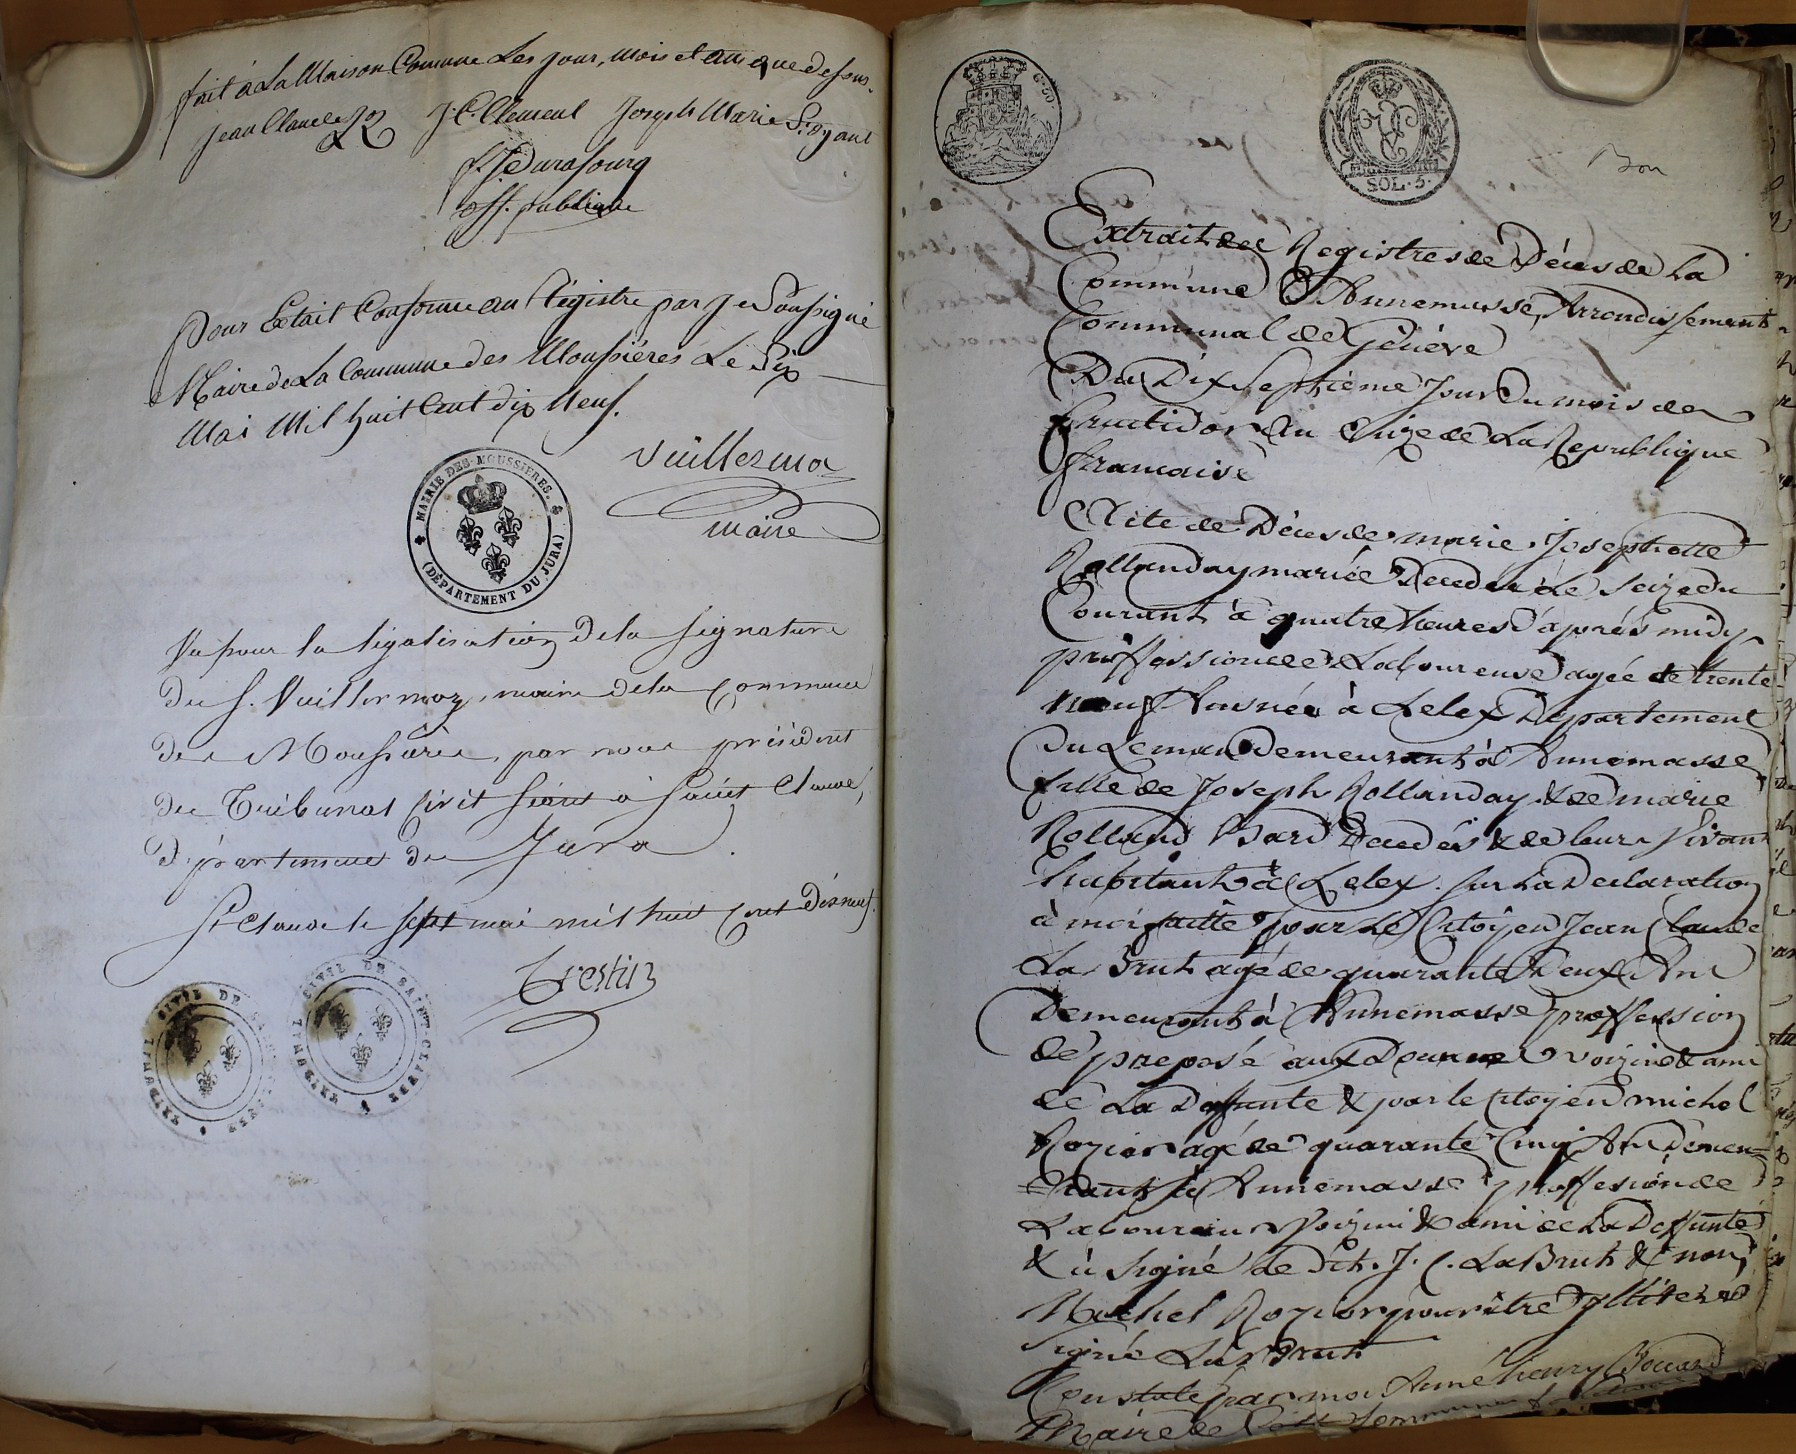 fait à La Maison Comune Les jour, mois et an que dessus.
Jean Claude J. C. Clement Joseph Marie
off. publique
pour Extait Conforme au Régistre par Je Soussigné
Maire de La Commune des Moussières Le Six
Mai Mil huit Cent dix Neuf.
Vuillermoz
maire
MAIRIE DES MOUSSIERES.
(DÉPARTEMENT DU JURA)
Vu pour la légalisation de la signature
du S. Vuillermoz, maire de la Commune
des Moussières, par nous président
du Tribunal Civil séant à Saint Claude,
département du Jura.
St Claude le sept mai mil huit cent dixneuf.
TRIBUNAL CIVIL DE
TRIBUNAL CIVIL DE SAINT-CLAUDE
Bon
SOL. 5.
Extrait des Registres de Décès de La
Commune d'Annemasse, Arrondissement
Communal de Genève
Du Dix Septième Jour du mois de
fructidor An Onze de La Republique
francaise
Acte de Décès de marie Josephotte
Rollanday mariée Decedée Le Seize du
Courant à quatre heures d'après midy
proffession de Laboureuse agée de trente
neuf Ans née à Lelex Département
du Leman demeurant à Annemasse
fille de Joseph Rollanday & de marie
Rolland Bard Decedés & de leur Vivant
habitant à Lelex. sur La Declaration
à moi faitte par Le Citoyen Jean Claude
La Brut agé de quarante Deux Ans
Demeurant à Annemasse proffession
de préposé aux Douane voizin & ami
de La Deffunte & par le Citoyen michel
Rozior agé de quarante Cinq Ans Demeu=
=rant à Annemasse proffesion de
Laboureur Voizin & ami de La Deffunte
& à signé Le Dit. J. C. LaBrut & non
Michel Rozior pour être Illiteré
Signé La Brut
Constaté par moi Aimé henry Bouard
Maire de